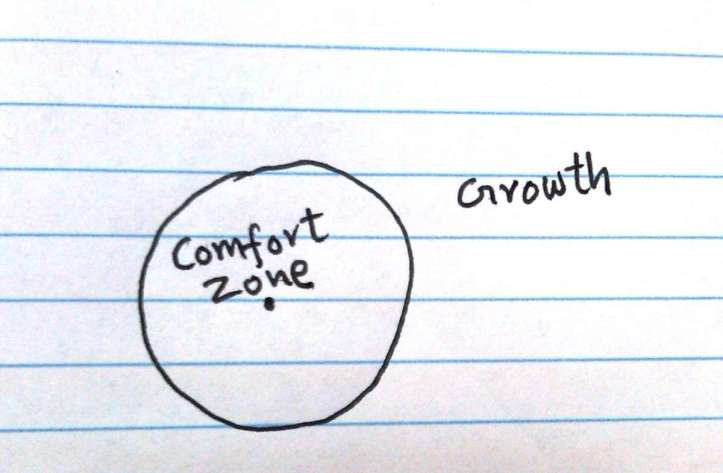 Comfort
zone
Growth